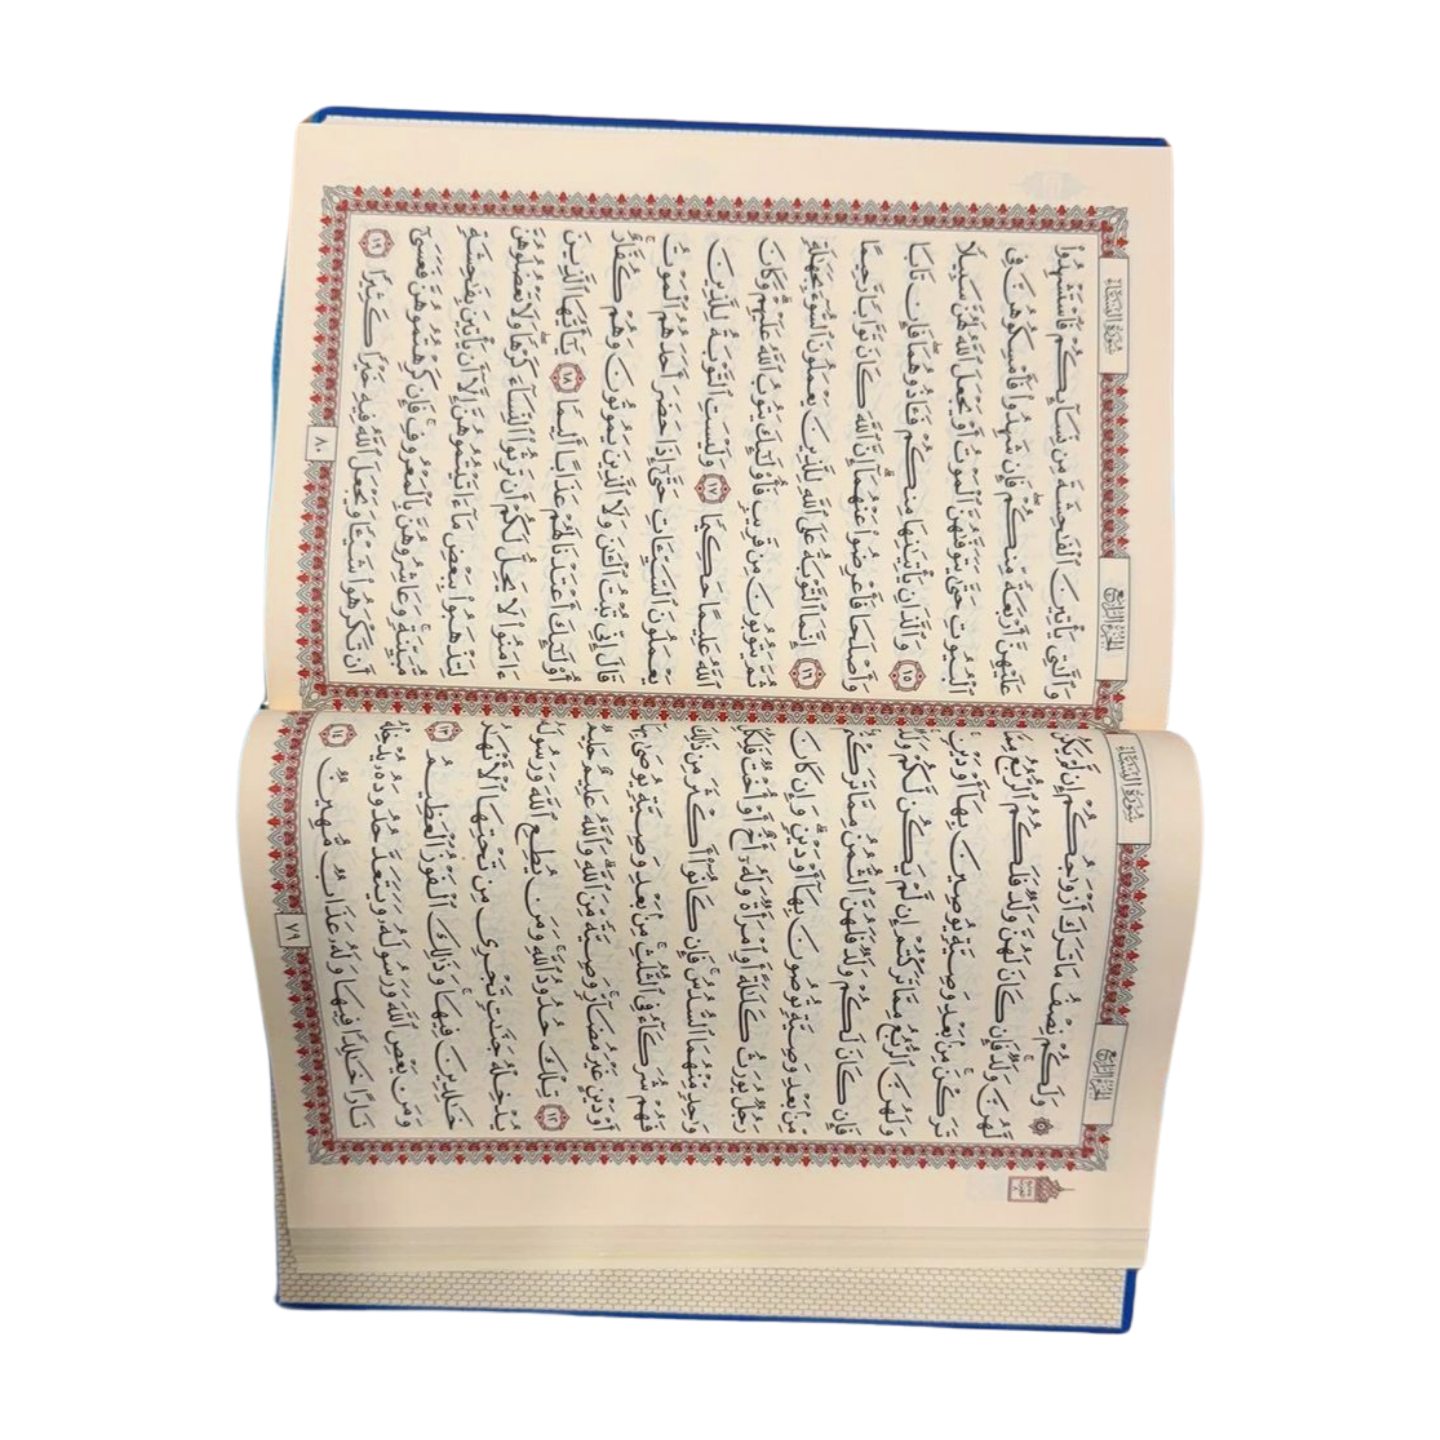 سُورَةُ النِّسَاءِ
الجُزْءُ الرَّابِعُ
۞ وَلَكُمْ نِصْفُ مَا تَرَكَ أَزْوَٰجُكُمْ إِن لَّمْ يَكُن
لَّهُنَّ وَلَدٌ ۚ فَإِن كَانَ لَهُنَّ وَلَدٌ فَلَكُمُ ٱلرُّبُعُ مِمَّا
تَرَكْنَ ۚ مِنۢ بَعْدِ وَصِيَّةٍ يُوصِينَ بِهَآ أَوْ دَيْنٍ ۚ
وَلَهُنَّ ٱلرُّبُعُ مِمَّا تَرَكْتُمْ إِن لَّمْ يَكُن لَّكُمْ وَلَدٌ ۚ
فَإِن كَانَ لَكُمْ وَلَدٌ فَلَهُنَّ ٱلثُّمُنُ مِمَّا تَرَكْتُم ۚ
مِّنۢ بَعْدِ وَصِيَّةٍ تُوصُونَ بِهَآ أَوْ دَيْنٍ ۗ وَإِن كَانَ
رَجُلٌ يُورَثُ كَلَٰلَةً أَوِ ٱمْرَأَةٌ وَلَهُۥٓ أَخٌ أَوْ أُخْتٌ فَلِكُلِّ
وَٰحِدٍ مِّنْهُمَا ٱلسُّدُسُ ۚ فَإِن كَانُوٓا۟ أَكْثَرَ مِن ذَٰلِكَ
فَهُمْ شُرَكَآءُ فِى ٱلثُّلُثِ ۚ مِنۢ بَعْدِ وَصِيَّةٍ يُوصَىٰ بِهَآ
أَوْ دَيْنٍ غَيْرَ مُضَآرٍّ ۚ وَصِيَّةً مِّنَ ٱللَّهِ ۗ وَٱللَّهُ عَلِيمٌ حَلِيمٌ
١٢ تِلْكَ حُدُودُ ٱللَّهِ ۚ وَمَن يُطِعِ ٱللَّهَ وَرَسُولَهُۥ
يُدْخِلْهُ جَنَّٰتٍ تَجْرِى مِن تَحْتِهَا ٱلْأَنْهَٰرُ
خَٰلِدِينَ فِيهَا ۚ وَذَٰلِكَ ٱلْفَوْزُ ٱلْعَظِيمُ ١٣
وَمَن يَعْصِ ٱللَّهَ وَرَسُولَهُۥ وَيَتَعَدَّ حُدُودَهُۥ يُدْخِلْهُ
نَارًا خَٰلِدًا فِيهَا وَلَهُۥ عَذَابٌ مُّهِينٌ ١٤
٧٩
سُورَةُ النِّسَاءِ
الجُزْءُ الرَّابِعُ
وَٱلَّٰتِى يَأْتِينَ ٱلْفَٰحِشَةَ مِن نِّسَآئِكُمْ فَٱسْتَشْهِدُوا۟
عَلَيْهِنَّ أَرْبَعَةً مِّنكُمْ ۖ فَإِن شَهِدُوا۟ فَأَمْسِكُوهُنَّ فِى
ٱلْبُيُوتِ حَتَّىٰ يَتَوَفَّىٰهُنَّ ٱلْمَوْتُ أَوْ يَجْعَلَ ٱللَّهُ لَهُنَّ سَبِيلًا
١٥ وَٱلَّذَانِ يَأْتِيَٰنِهَا مِنكُمْ فَـَٔاذُوهُمَا ۖ فَإِن تَابَا
وَأَصْلَحَا فَأَعْرِضُوا۟ عَنْهُمَآ ۗ إِنَّ ٱللَّهَ كَانَ تَوَّابًا رَّحِيمًا
١٦ إِنَّمَا ٱلتَّوْبَةُ عَلَى ٱللَّهِ لِلَّذِينَ يَعْمَلُونَ ٱلسُّوٓءَ بِجَهَٰلَةٍ
ثُمَّ يَتُوبُونَ مِن قَرِيبٍ فَأُو۟لَٰٓئِكَ يَتُوبُ ٱللَّهُ عَلَيْهِمْ ۗ وَكَانَ
ٱللَّهُ عَلِيمًا حَكِيمًا ١٧ وَلَيْسَتِ ٱلتَّوْبَةُ لِلَّذِينَ
يَعْمَلُونَ ٱلسَّيِّـَٔاتِ حَتَّىٰٓ إِذَا حَضَرَ أَحَدَهُمُ ٱلْمَوْتُ
قَالَ إِنِّى تُبْتُ ٱلْـَٰٔنَ وَلَا ٱلَّذِينَ يَمُوتُونَ وَهُمْ كُفَّارٌ ۚ
أُو۟لَٰٓئِكَ أَعْتَدْنَا لَهُمْ عَذَابًا أَلِيمًا ١٨ يَٰٓأَيُّهَا ٱلَّذِينَ
ءَامَنُوا۟ لَا يَحِلُّ لَكُمْ أَن تَرِثُوا۟ ٱلنِّسَآءَ كَرْهًا ۖ وَلَا تَعْضُلُوهُنَّ
لِتَذْهَبُوا۟ بِبَعْضِ مَآ ءَاتَيْتُمُوهُنَّ إِلَّآ أَن يَأْتِينَ بِفَٰحِشَةٍ
مُّبَيِّنَةٍ ۚ وَعَاشِرُوهُنَّ بِٱلْمَعْرُوفِ ۚ فَإِن كَرِهْتُمُوهُنَّ فَعَسَىٰٓ
أَن تَكْرَهُوا۟ شَيْـًٔا وَيَجْعَلَ ٱللَّهُ فِيهِ خَيْرًا كَثِيرًا ١٩
٨٠